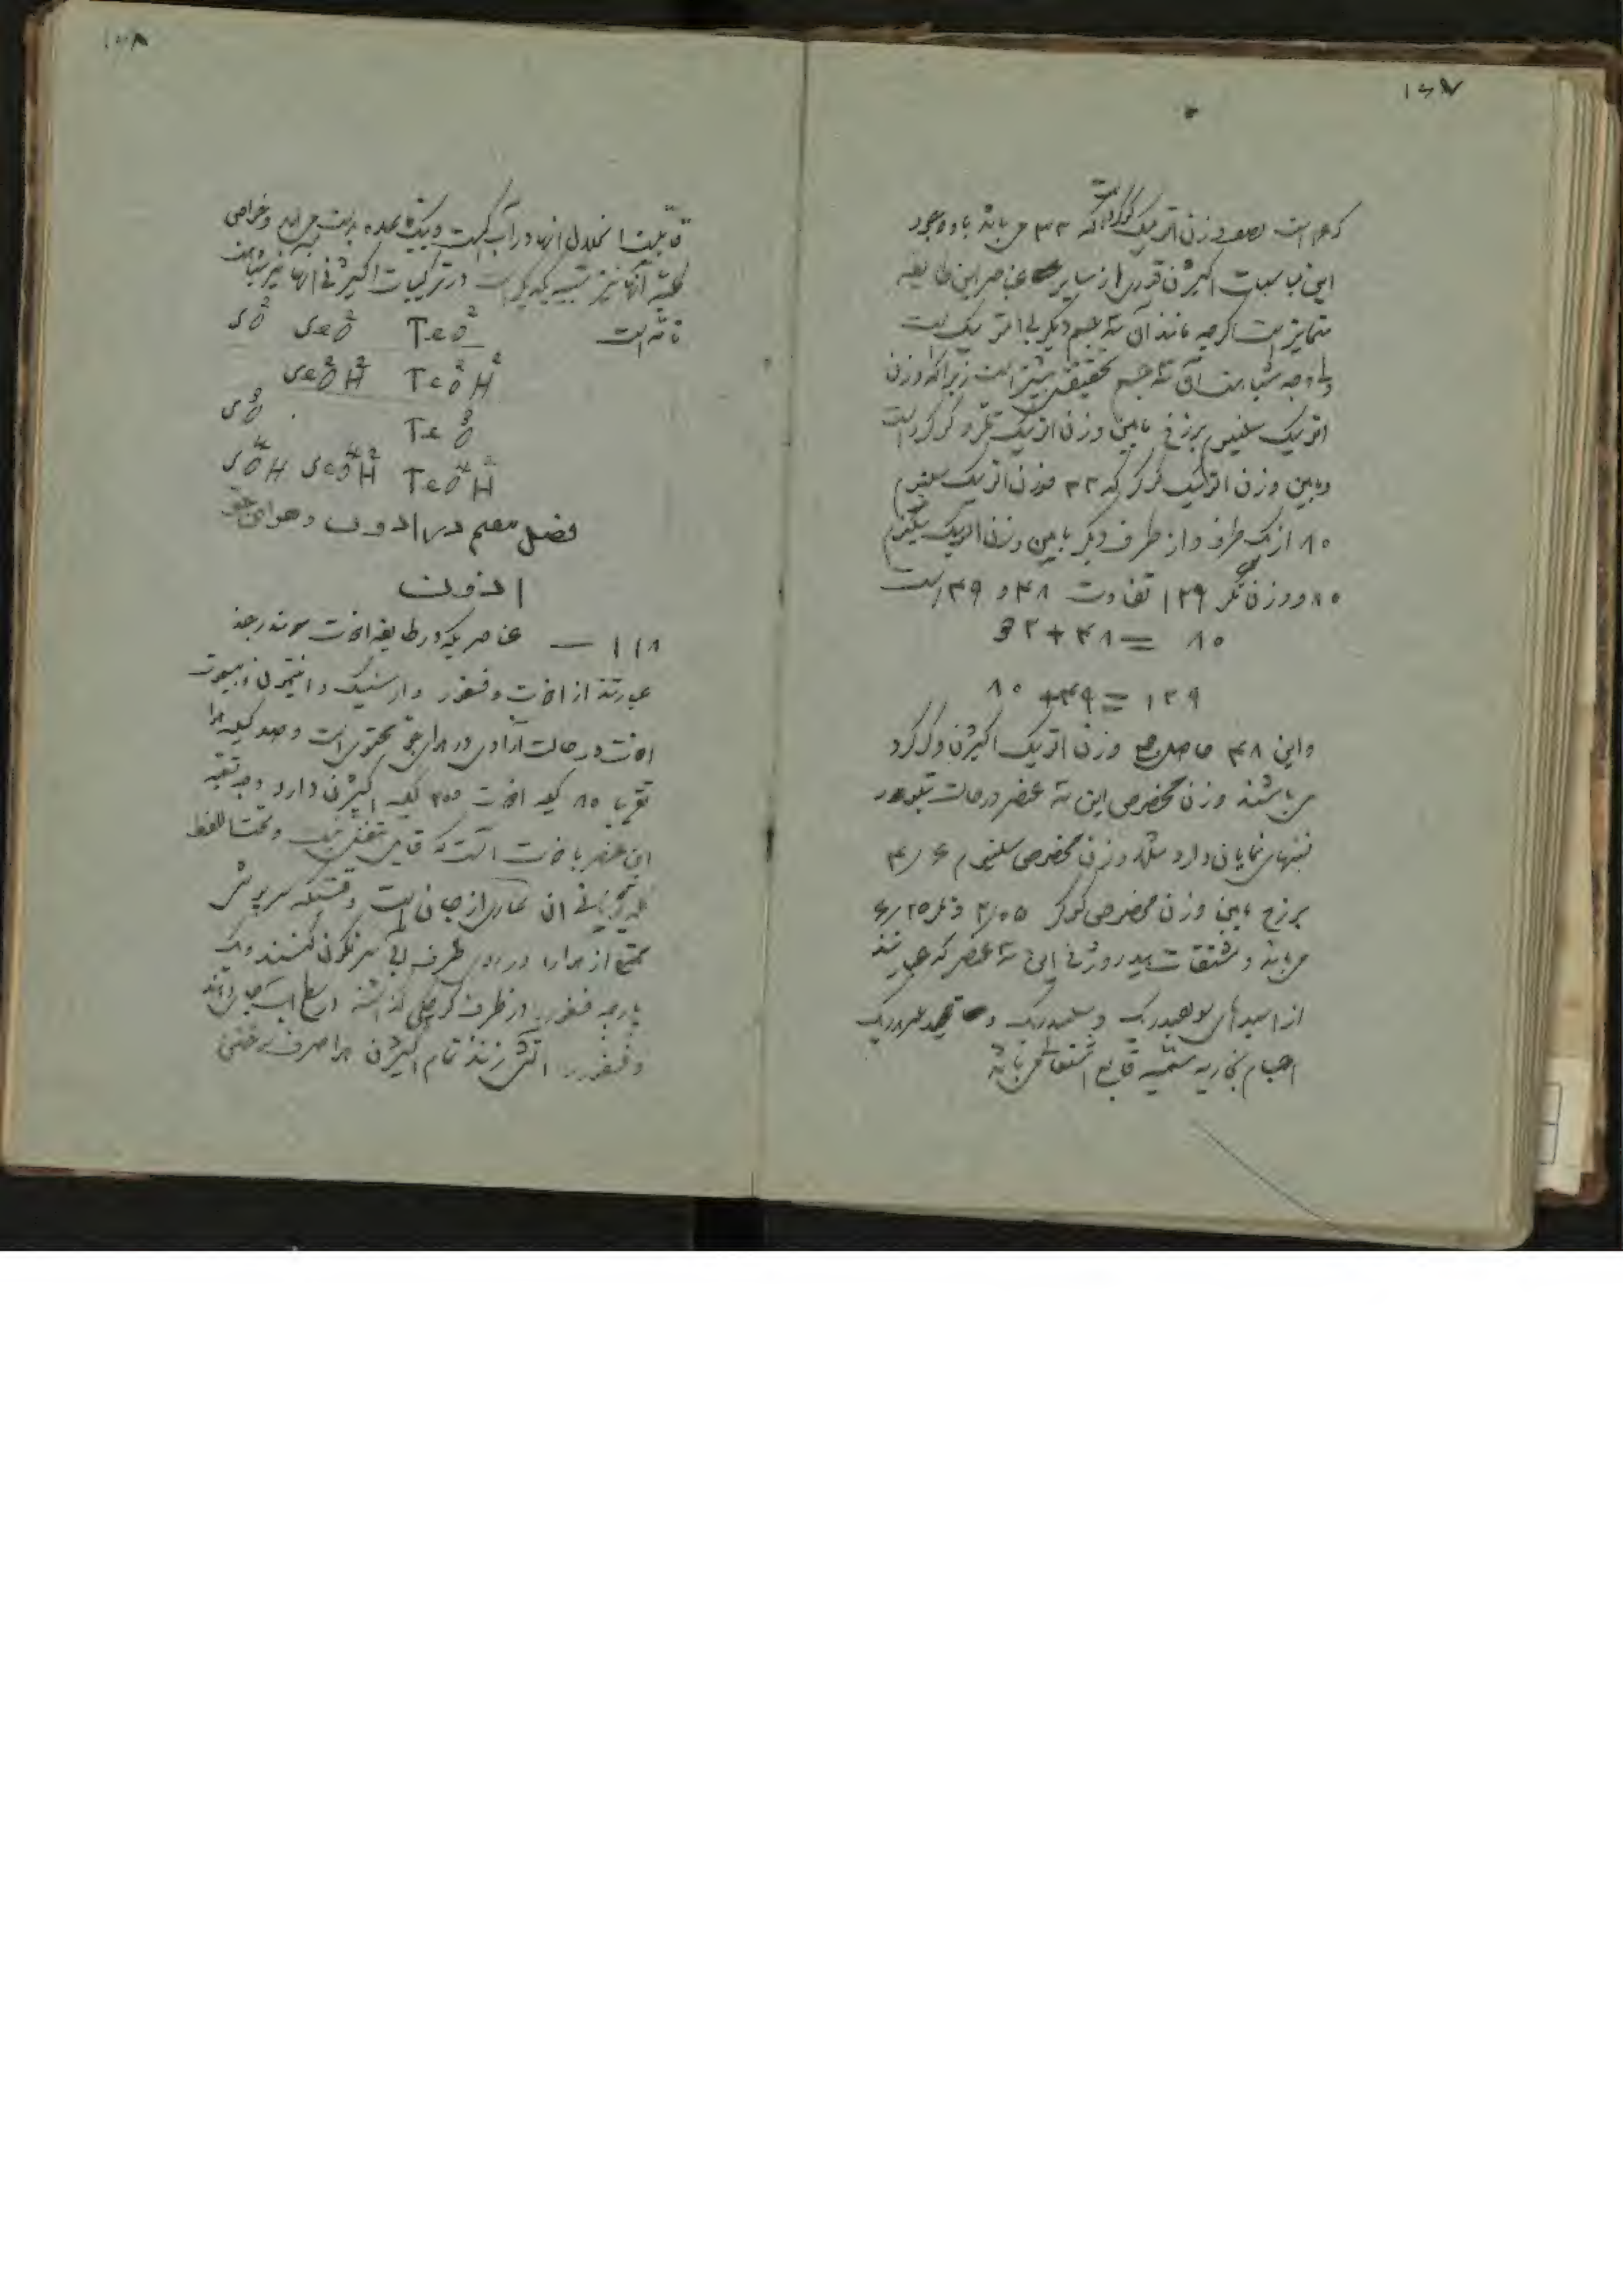 ۱۶۷
که ۱۶ است نصف وزن اتمیک گوگرد است که ۳۲ می باشد با وجود
این مناسبات اکیژن قدری از سایر عناصر این طایفه
متمایز است اگرچه مانند آن سه جسم دیگر
ولی وجه شباهت آن سه جسم تحقیقی بیشتر است زیرا که وزن
اتمیک سلنیم برزخ مابین وزن اتمیک تلر و گوگرد است
ومابین وزن اتمیک گوگرد که ۳۲ و وزن اتمیک سلنیم
۸۰ از یک طرف و از طرف دیگر مابین وزن اتمیک سلنیم
۸۰ و وزن تلر ۱۲۹ تفاوت ۴۸ و ۴۹ است
۳۲+۴۸= ۸۰
۸۰ +۴۹= ۱۲۹
واین ۴۸ حاصل جمع وزن اتمیک اکیژن و گوگرد
می باشند وزن مخصوص این سه عنصر در حالت تبلور
نمایان دارد مثلا وزن مخصوص سلنیم ۴/۶
برزخ مابین وزن مخصوص گوگرد ۲/۰۵ و تلر ۶/۲۵
می باشد و مشتقات ئیدروژنی این سه عنصر که عبارتند
از اسیدهای سولفیدریک و سلنیدریک و تلوریدریک
اجسام بخاریه سمیه قابل اشتعال می باشند
۱۶۸
قابلیت انحلال آنها در آب و خواص
کلیه آنها نیز شبیه یکدیگر است در ترکیبات اکیژنی آنها نیز شباهت
تامه است
SO² SeO² TeO²
SeO²H² TeO²H²
SO³ TeO³
SO⁴H SeO⁴H² TeO⁴H²
فصل در ازوت و هوای محیط
ازوت
۱۱۸ — عناصریکه در طایفه ازت مندرجند
عبارتند از ازت و فسفر و ارسنیک و انتیمون و بیسموت
ازت در حالت آزادی در هوای محیط محتوی است و صد کیله هوا
تقریبا ۸۰ کیله ازت و ۲۰ کیله اکیژن دارد وجه تسمیه
این عنصر بازت آنست که قابل تنفس نیست و تحت اللفظ
یونانی آن عاری از حیات است وقتیکه سرپوش
مملو از هوا را در روی ظرف آبی سرنگون کنند و یک
پارچه فسفر در ظرف کوچکی گذاشته در سطح آب جای دهند
و فسفر را آتش زنند تمام اکیژن هوا صرف سوختن